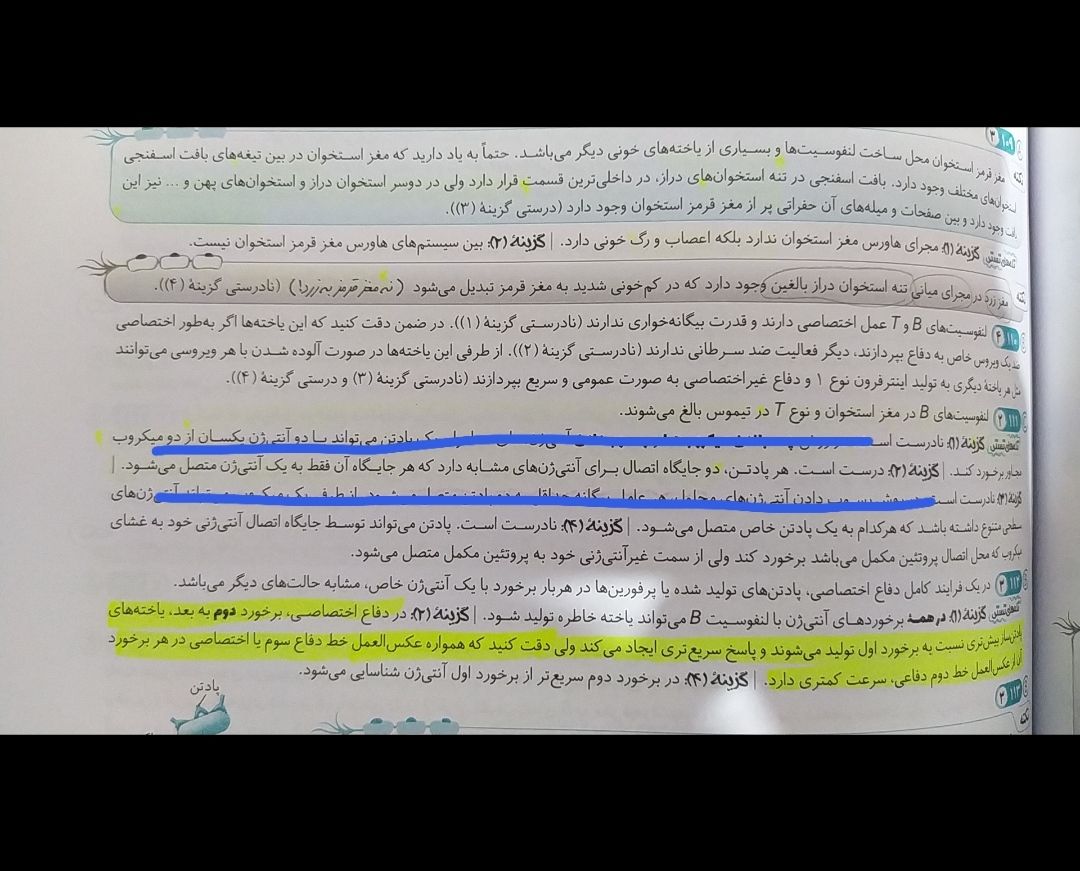 ۱۰۹ ۳
نکته مغز قرمز استخوان محل ساخت لنفوسیت‌ها و بسیاری از یاخته‌های خونی دیگر می‌باشد. حتماً به یاد دارید که مغز استخوان در بین تیغه‌های بافت اسفنجی
استخوان‌های مختلف وجود دارد. بافت اسفنجی در تنه استخوان‌های دراز، در داخلی‌ترین قسمت قرار دارد ولی در دوسر استخوان دراز و استخوان‌های پهن و ... نیز این
بافت وجود دارد و بین صفحات و میله‌های آن حفراتی پر از مغز قرمز استخوان وجود دارد (درستی گزینهٔ (۳)).
تله‌های تستی گزینهٔ (۱): مجرای هاورس مغز استخوان ندارد بلکه اعصاب و رگ خونی دارد. | گزینهٔ (۲): بین سیستم‌های هاورس مغز قرمز استخوان نیست.
نکته مغز زرد در مجرای میانی تنه استخوان دراز بالغین وجود دارد که در کم‌خونی شدید به مغز قرمز تبدیل می‌شود (نه مغز قرمز به زرد!) (نادرستی گزینهٔ (۴)).
۱۱۰ ۴ لنفوسیت‌های B و T عمل اختصاصی دارند و قدرت بیگانه‌خواری ندارند (نادرستی گزینهٔ (۱)). در ضمن دقت کنید که این یاخته‌ها اگر به‌طور اختصاصی
ضد یک ویروس خاص به دفاع بپردازند، دیگر فعالیت ضد سرطانی ندارند (نادرستی گزینهٔ (۲)). از طرفی این یاخته‌ها در صورت آلوده شدن با هر ویروسی می‌توانند
مثل هر یاختهٔ دیگری به تولید اینترفرون نوع ۱ و دفاع غیراختصاصی به صورت عمومی و سریع بپردازند (نادرستی گزینهٔ (۳) و درستی گزینهٔ (۴)).
۱۱۱ ۲ لنفوسیت‌های B در مغز استخوان و نوع T در تیموس بالغ می‌شوند.
تله‌های تستی گزینهٔ (۱): نادرست است یک پادتن می‌تواند با دو آنتی‌ژن یکسان از دو میکروب
مجاور برخورد کند. | گزینهٔ (۲): درست است. هر پادتن، دو جایگاه اتصال برای آنتی‌ژن‌های مشابه دارد که هر جایگاه آن فقط به یک آنتی‌ژن متصل می‌شود. |
گزینهٔ (۳): نادرست است آنتی‌ژن‌های
سطحی متنوع داشته باشد که هرکدام به یک پادتن خاص متصل می‌شود. | گزینهٔ (۴): نادرست است. پادتن می‌تواند توسط جایگاه اتصال آنتی‌ژنی خود به غشای
میکروب که محل اتصال پروتئین مکمل می‌باشد برخورد کند ولی از سمت غیرآنتی‌ژنی خود به پروتئین مکمل متصل می‌شود.
۱۱۲ ۳ در یک فرایند کامل دفاع اختصاصی، پادتن‌های تولید شده یا پرفورین‌ها در هربار برخورد با یک آنتی‌ژن خاص، مشابه حالت‌های دیگر می‌باشد.
تله‌های تستی گزینهٔ (۱): در همهٔ برخوردهای آنتی‌ژن با لنفوسیت B می‌تواند یاخته خاطره تولید شود. | گزینهٔ (۲): در دفاع اختصاصی، برخورد دوم به بعد، یاخته‌های
پادتن‌ساز بیش‌تری نسبت به برخورد اول تولید می‌شوند و پاسخ سریع‌تری ایجاد می‌کند ولی دقت کنید که همواره عکس‌العمل خط دفاع سوم یا اختصاصی در هر برخورد
آن از عکس‌العمل خط دوم دفاعی، سرعت کمتری دارد. | گزینهٔ (۴): در برخورد دوم سریع‌تر از برخورد اول آنتی‌ژن شناسایی می‌شود.
۱۱۳ ۳
پادتن
نکته